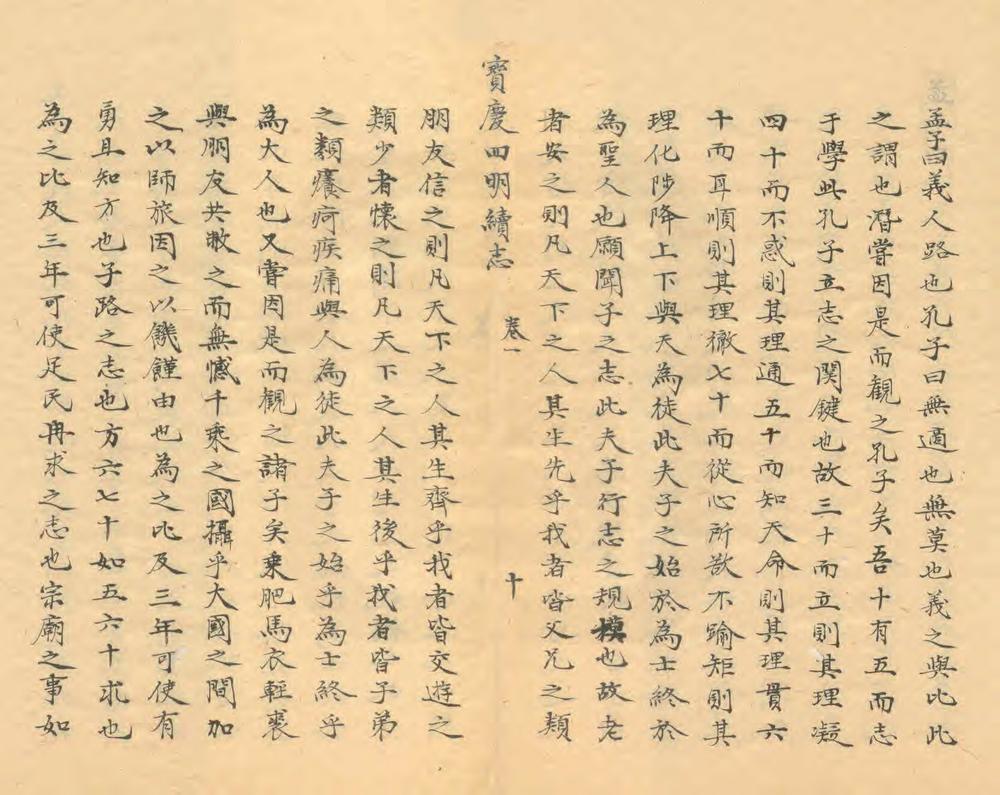 孟子曰義人路也孔子曰無適也無莫也義之與比此
之謂也潛嘗因是而觀之孔子矣吾十有五而志
于學此孔子立志之関鍵也故三十而立則其理凝
四十而不惑則其理通五十而知天命則其理貫六
十而耳順則其理徹七十而從心所欲不踰矩則其
理化陟降上下與天為徒此夫子之始於為士終於
為聖人也願聞子之志此夫子行志之規模也故老
者安之則凡天下之人其生先乎我者皆父兄之類
寶慶四明續志 卷一 十
朋友信之則凡天下之人其生齊乎我者皆交遊之
類少者懷之則凡天下之人其生後乎我者皆子弟
之類癢疴疾痛與人為徒此夫子之始乎為士終乎
為大人也又嘗因是而觀之諸子矣乗肥馬衣輕裘
與朋友共敝之而無憾千乘之國攝乎大國之間加
之以師旅因之以饑饉由也為之比及三年可使有
勇且知方也子路之志也方六七十如五六十求也
為之比及三年可使足民冉求之志也宗廟之事如